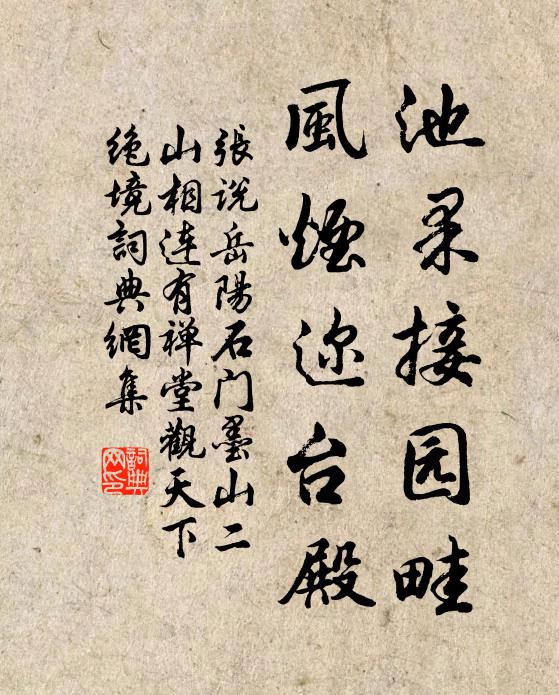 池果接园畦
風煙迩台殿
張说岳陽石门墨山二
山相连有禅堂觀天下
绝境詞典網集
詞典
网印